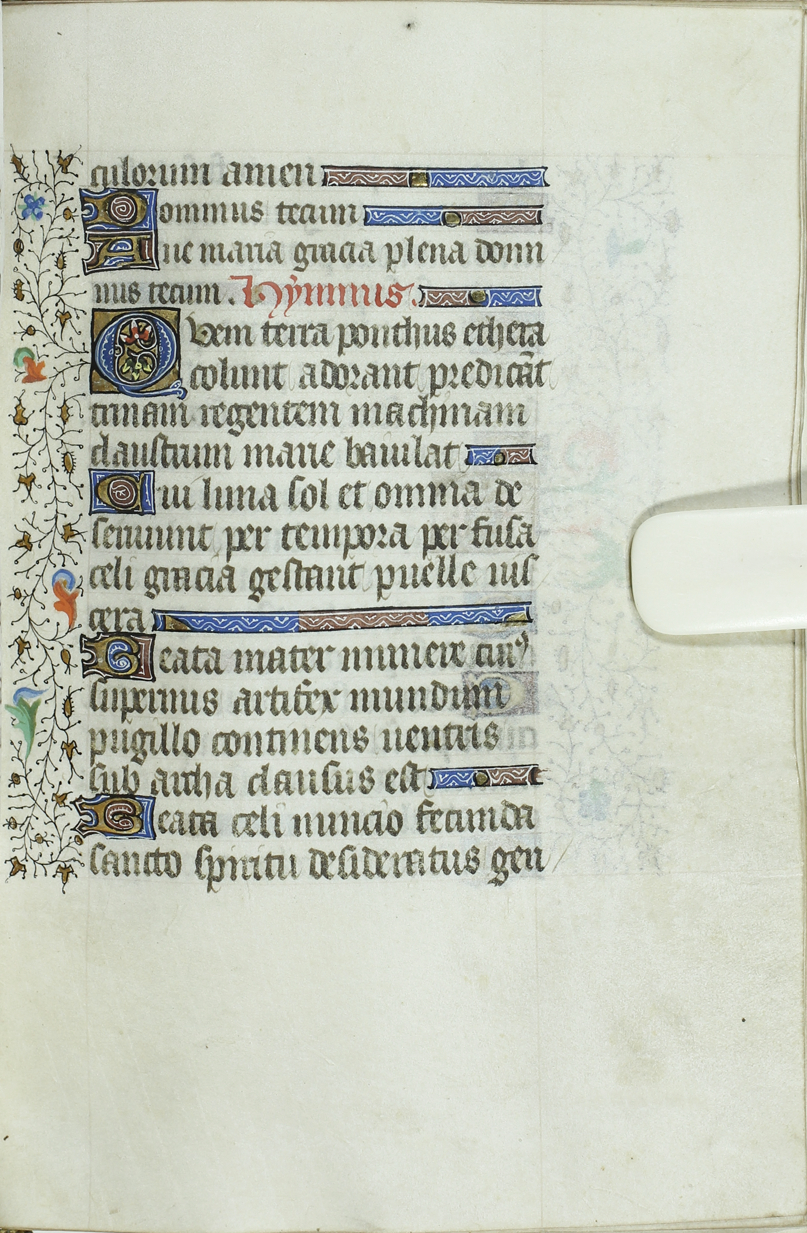 culorum amen
Dominus tecum
Aue maria gracia plena domi
nus tecum. Hÿmnus.
Quem terra ponthus ethera
colunt adorant predicāt
trinam regentem machinam
claustrum marie baiulat
Cui luna sol et omnia de
seruiunt per tempora perfusa
celi gracia gestant puelle uis
cera
Beata mater munere cuiꝰ
supernus artifex mundum
pugillo continens uentris
sub archa clausus est
Beata celi nuncio fecunda
sancto spiritu desideratus gen